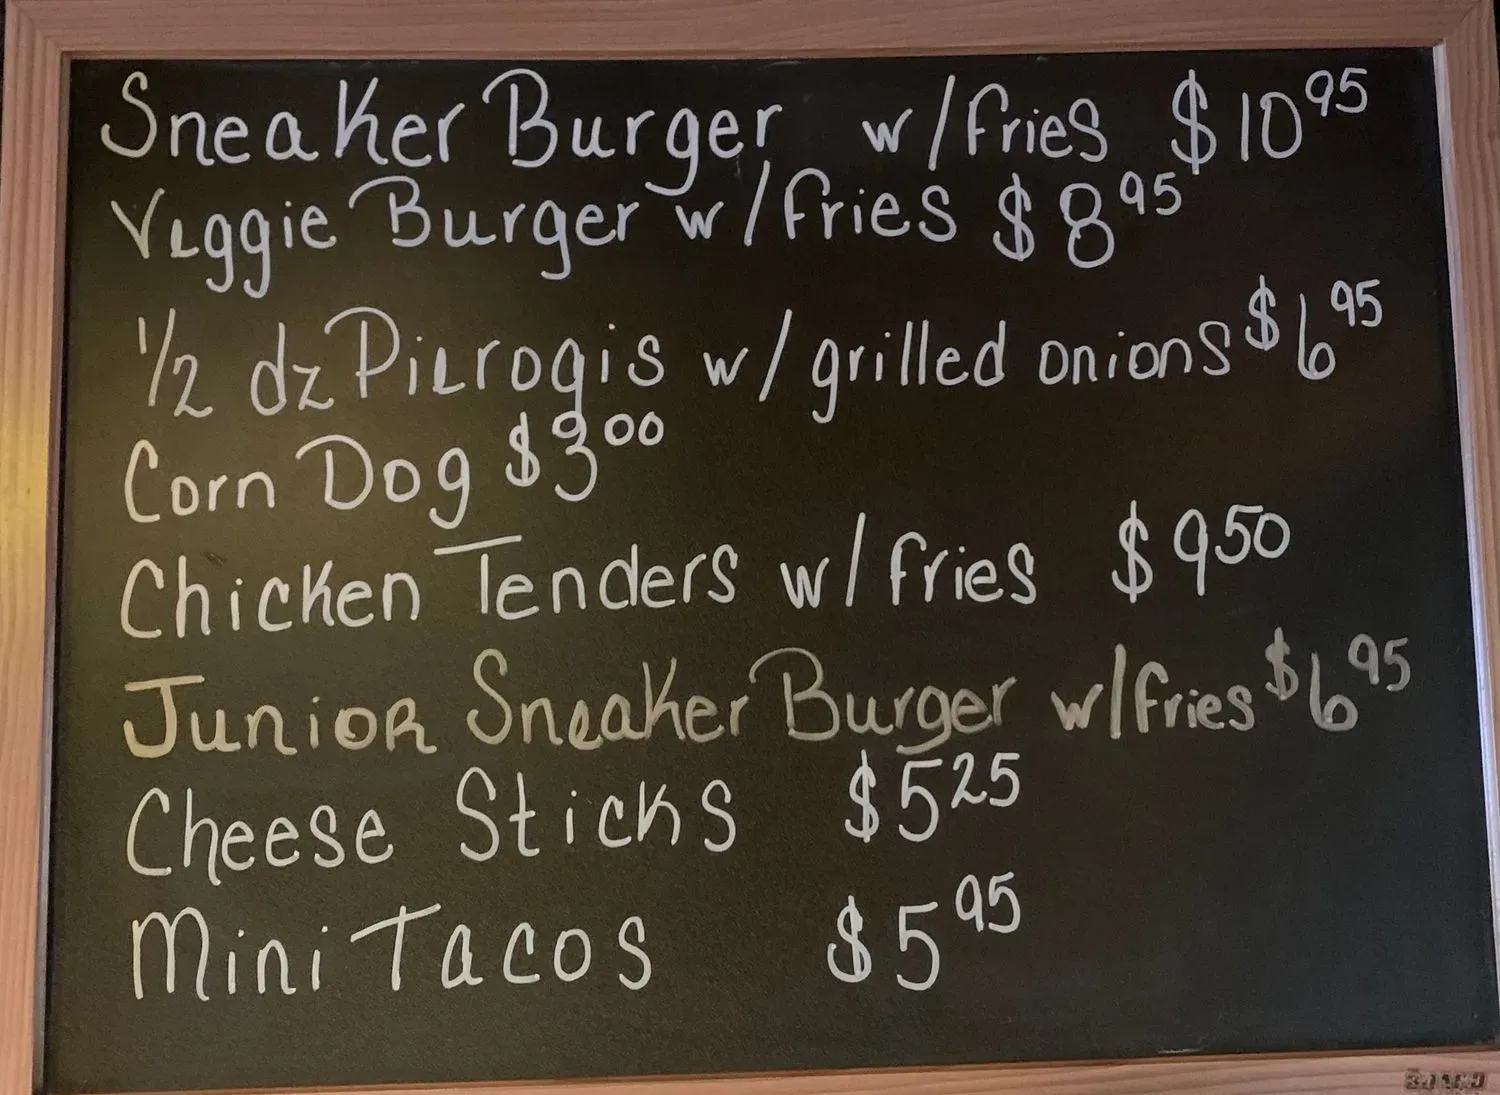 Sneaker Burger w/fries $10.95
Veggie Burger w/fries $8.95
1/2 dz Pierogis w/grilled onions $6.95
Corn Dog $3.00
Chicken Tenders w/fries $9.50
Junior Sneaker Burger w/fries $6.95
Cheese Sticks $5.25
Mini Tacos $5.95